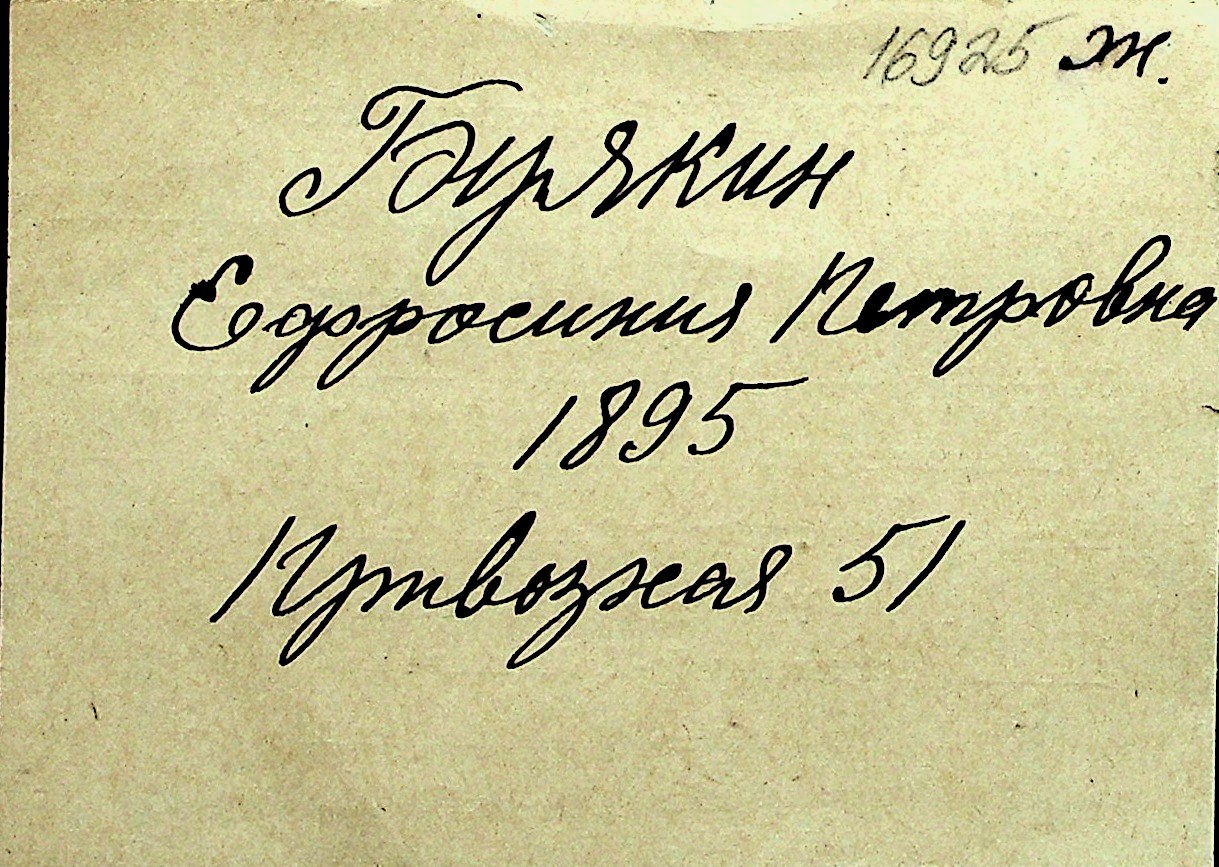 16925 ж.
Бурякин
Ефросиния Петровна
1895
Путвозная 51